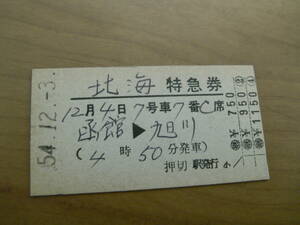 北海 特急券
12月4日7号車7番C席
函館▶旭川
(4時50分発車)
押切駅発行
54.12.-3.